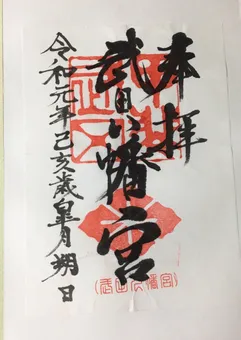 奉拝
武田八幡宮
令和元年己亥歳皐月朔日
武田八幡宮